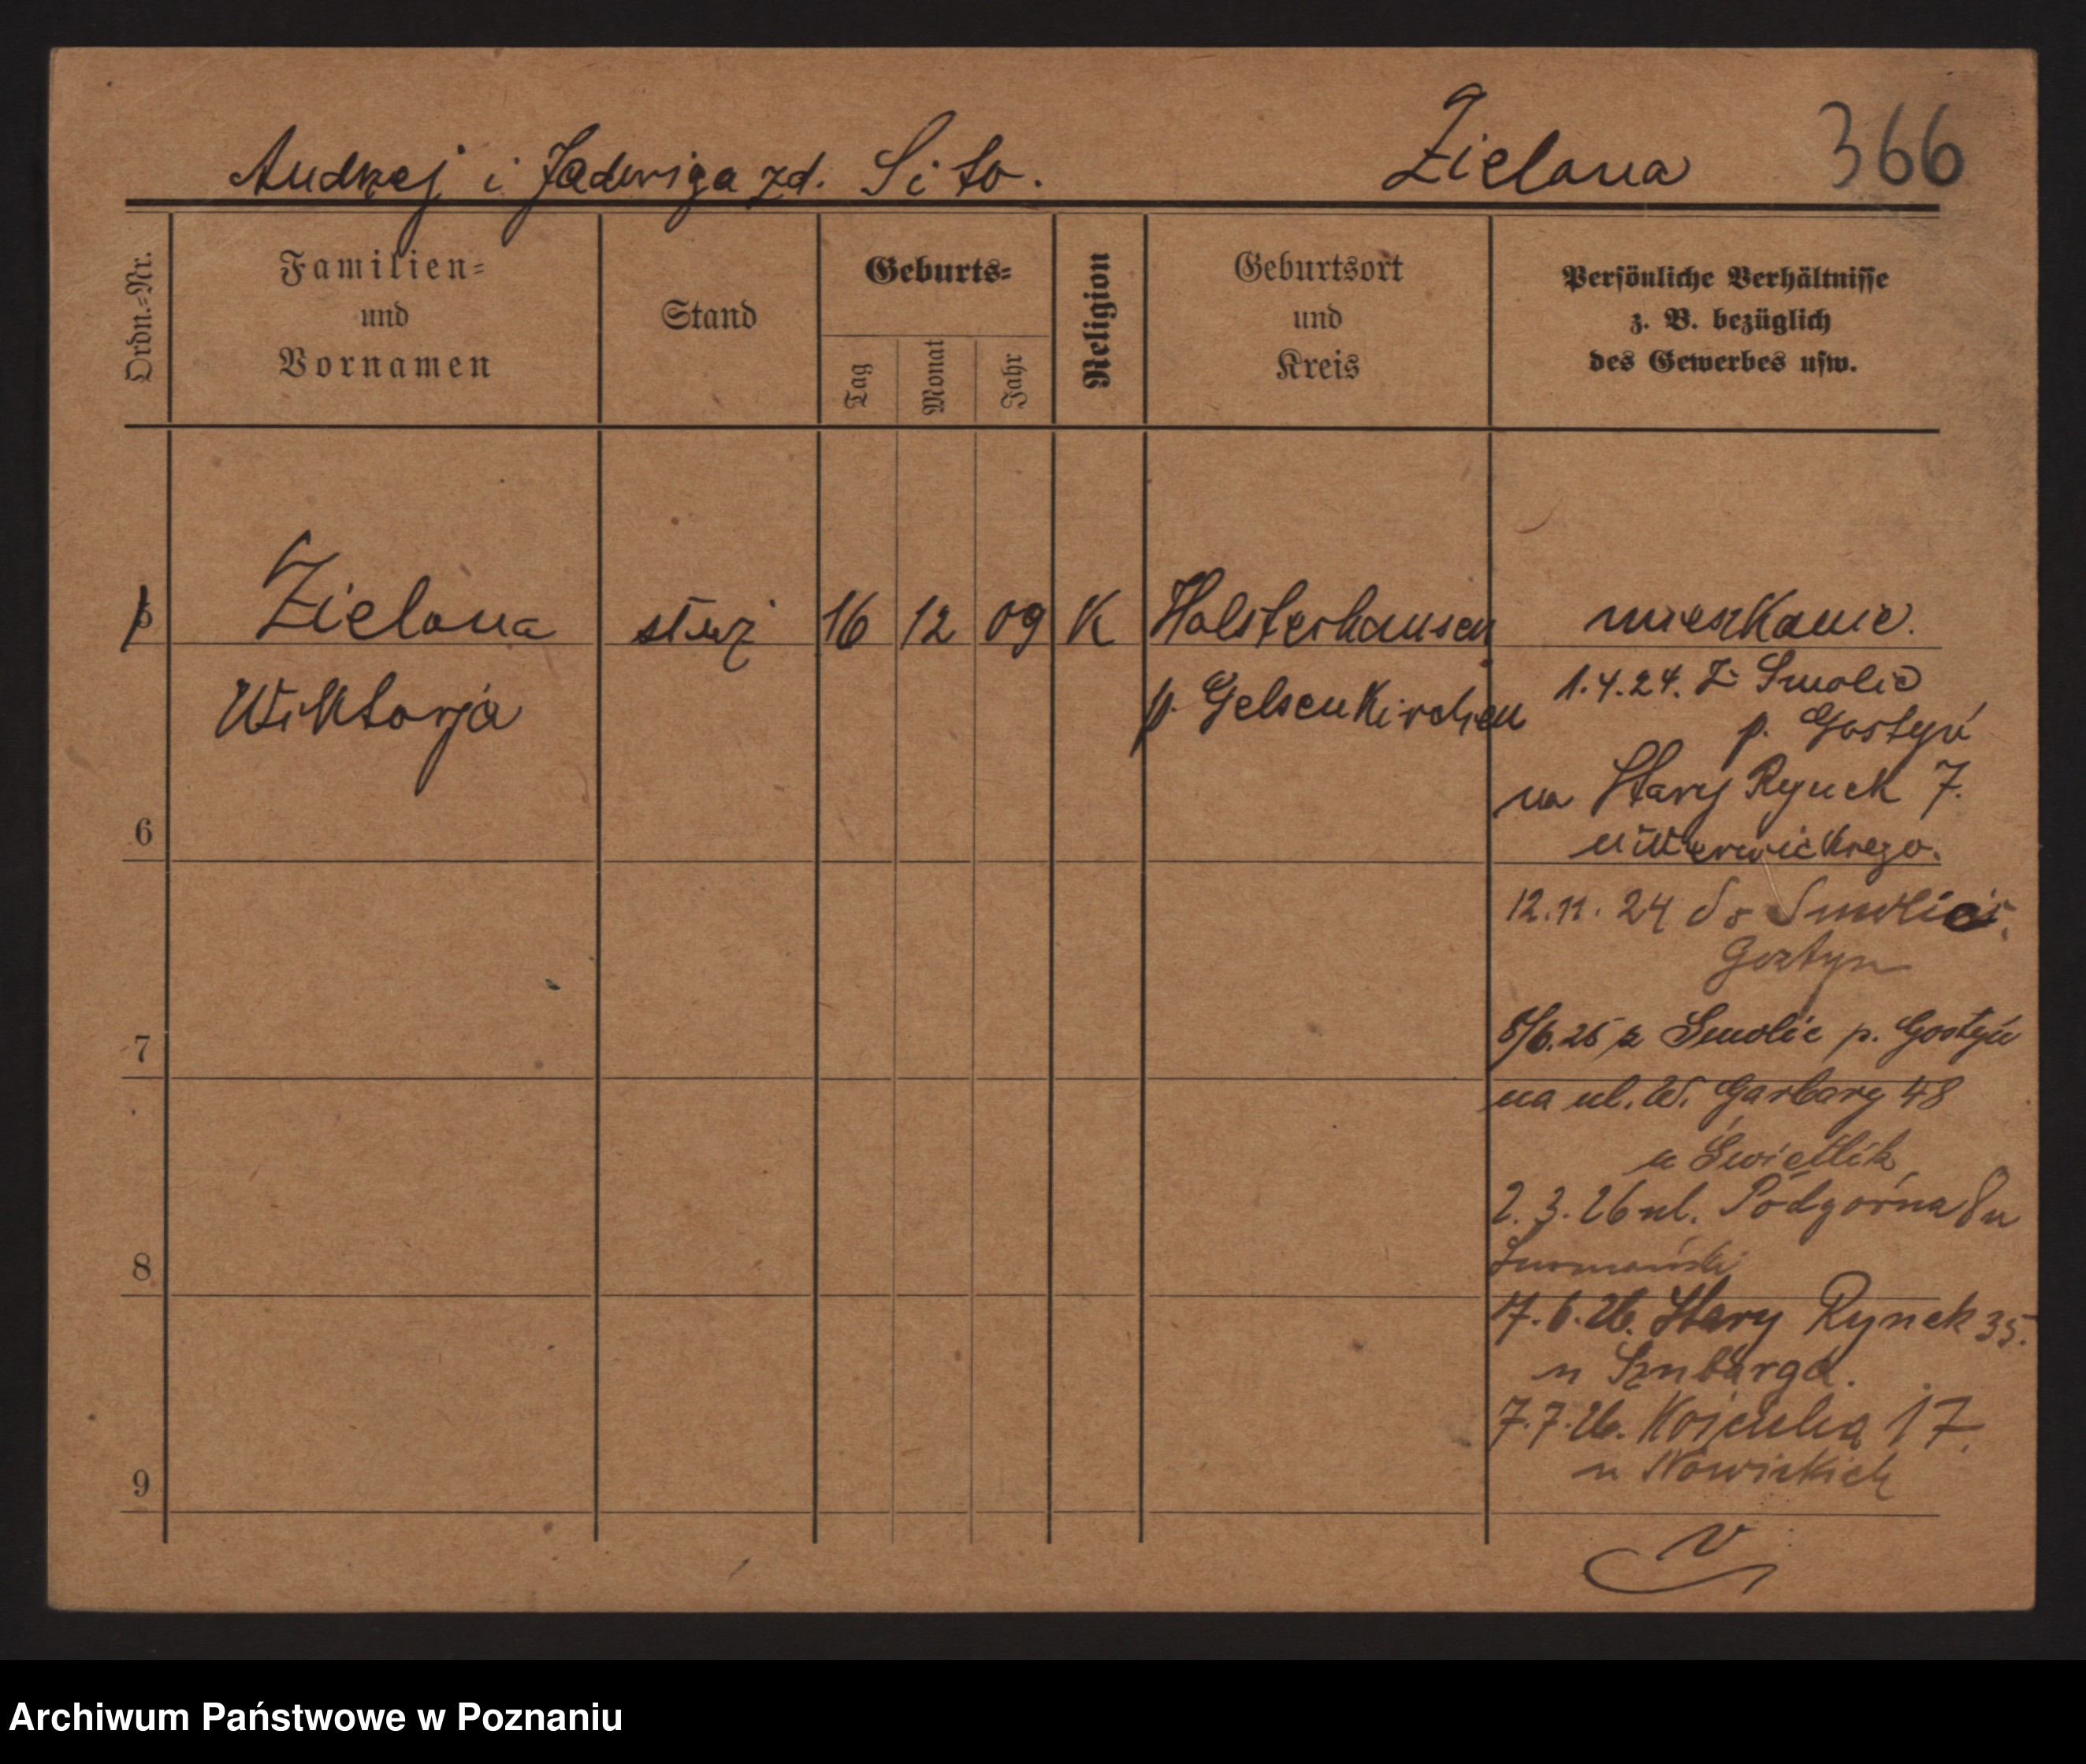 Andrzej i Jadwiga zd. Sito. Zielona 366
Ordn.=Nr.
Familien=
und
Vornamen
Stand
Geburts=
Tag
Monat
Jahr
Religion
Geburtsort
und
Kreis
Persönliche Verhältnisse
z. B. bezüglich
des Gewerbes usw.
5 Zielona służ 16 12 09 K Holsterhausen mieszkanie.
Wiktorja p. Gelsenkirchen
1.4.24. Z Smolic
p. Gostyń
na Stary Rynek 7.
6
12.11.24 do Smolic
Gostyn
5/6.25 z Smolic p. Gostyń
7
na ul. W. Garbary 48
u Świetlik
2.3.26 ul. Podgórna 8 u
8
17.6.26. Stary Rynek 35.
u Szubarga.
7.7.26. 17.
u Nowickich
9
Archiwum Państwowe w Poznaniu